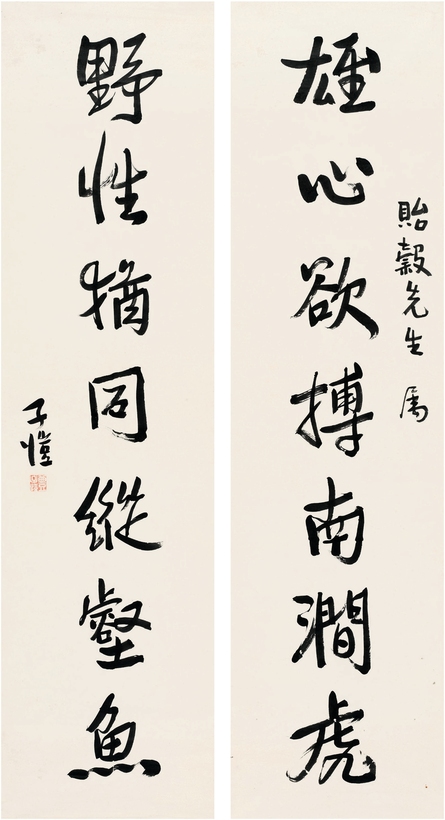 貽穀先生 属
雄心欲搏南澗虎
野性猶同縱壑魚
子愷